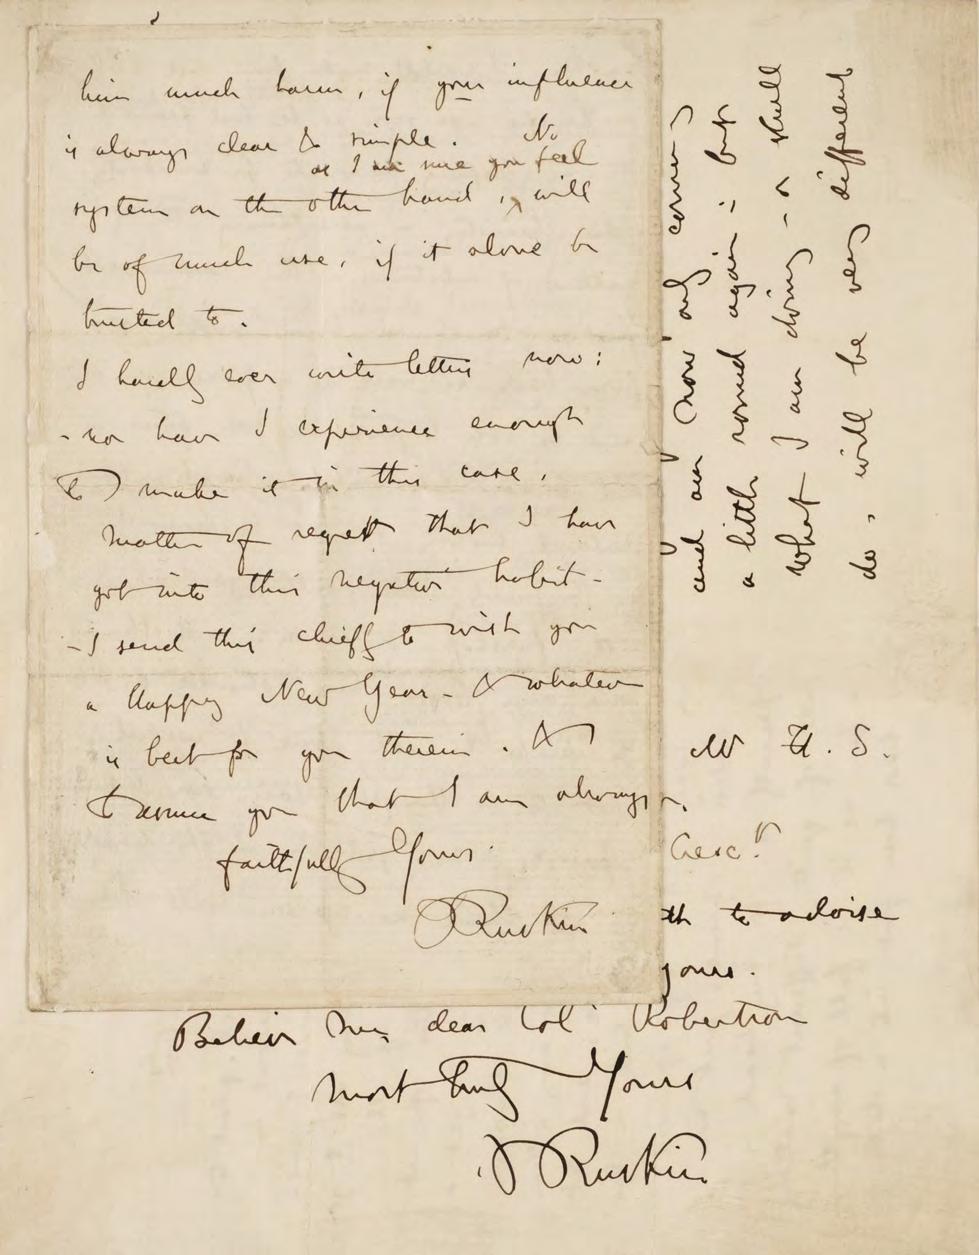 him much harm, if your influence
is always clear & simple. No
as I am sure you feel
system on the other hand, will
be of much use, if it alone be
trusted to.
I hardly ever write letters now:
- nor have I experience enough
to make it in this case,
matter of regret that I have
got into this negative habit -
- I send this chiefly to wish you
a happy New Year - & whatever
is best for you therein. &
to assure you that I am always
faithfully Yours
JRuskin
and am now only coming
a little round again; but
what I am doing - or shall
do, will be very different
S.
th to advise
yours.
Believe me, dear Col Robertson
Most Truly Yours
JRuskin